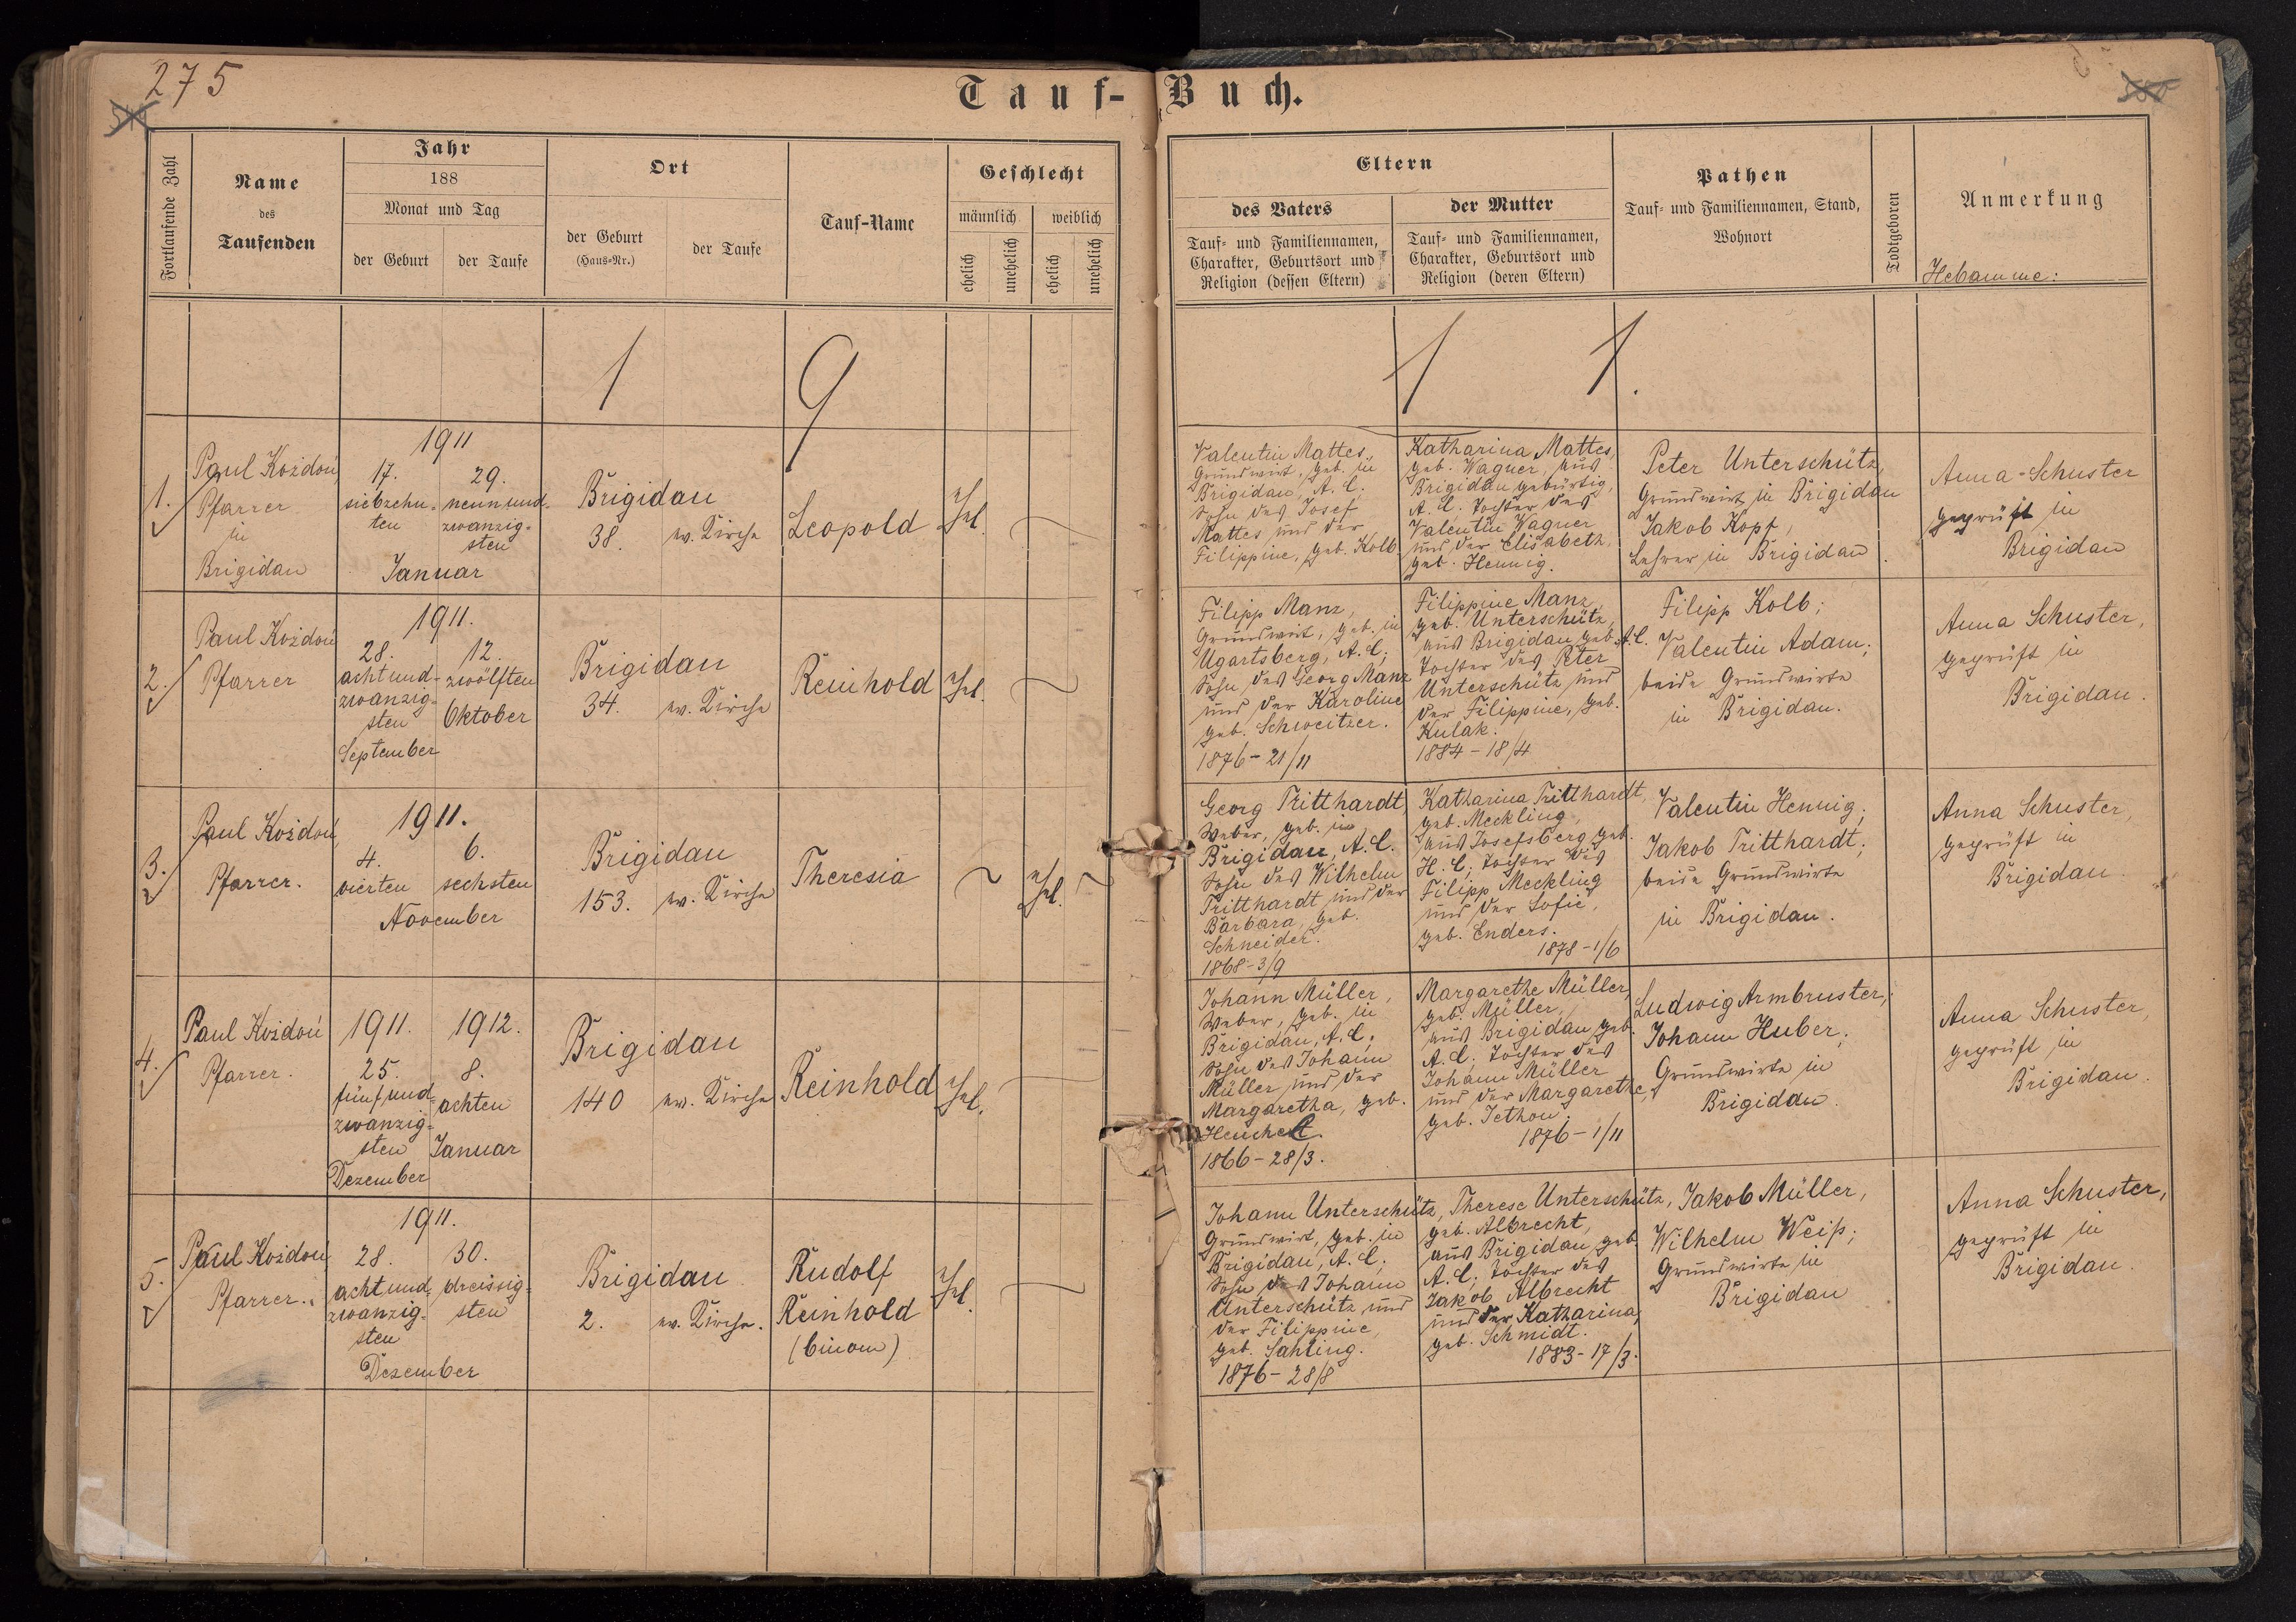 275
Tauf-Buch.
Fortlaufende Zahl
Name
des
Taufenden
Jahr
188
Monat und Tag
der Geburt
der Taufe
Ort
der Geburt
(Haus-Nr.)
der Taufe
Tauf-Name
Geschlecht
männlich
weiblich
ehelich
unehelich
ehelich
unehelich
Eltern
des Vaters
Tauf- und Familiennamen,
Charakter, Geburtsort und
Religion (dessen Eltern)
der Mutter
Tauf- und Familiennamen,
Charakter, Geburtsort und
Religion (deren Eltern)
Pathen
Tauf- und Familiennamen, Stand,
Wohnort
Todtgeboren
Anmerkung
Hebamme:
1 9 1 1.
1.
Paul Kożdoń,
Pfarrer
in
Brigidau
1911
17.
siebzehn-
ten
29.
neunund-
zwanzig-
sten
Januar
Brigidau
38.
ev. Kirche
Leopold
Ehel.
Valentin Mattes,
Grundwirt, geb. in
Brigidau, A. C.
Sohn des Josef
Mattes und der
Filippine, geb. Kolb
Katharina Mattes,
geb. Wagner, aus
Brigidau gebürtig,
A. C. Tochter des
Valentin Wagner
und der Elisabeth,
geb. Hennig.
Peter Unterschütz,
Grundwirt in Brigidau
Jakob Kopf,
Lehrer in Brigidau.
Anna Schuster
geprüft in
Brigidau
2.
Paul Kożdoń
Pfarrer
1911.
28.
achtund-
zwanzig-
sten
September
12.
zwölften
Oktober
Brigidau
34.
ev. Kirche
Reinhold
Ehel.
Filipp Manz,
Grundwirt, geb. in
Ugartsberg, A. C;
Sohn des Georg Manz
und der Karoline
geb. Schweitzer.
1876 - 21/11
Filippine Manz,
geb. Unterschütz,
aus Brigidau geb. A.C.
Tochter des Peter
Unterschütz und
der Filippine, geb.
Kulak.
1884 - 18/4
Filipp Kolb;
Valentin Adam;
beide Grundwirte
in Brigidau.
Anna Schuster,
geprüft in
Brigidau.
3.
Paul Kożdoń,
Pfarrer.
1911.
4.
vierten
6.
sechsten
November
Brigidau
153.
ev. Kirche
Theresia
Ehel.
Georg Tritthardt,
Weber, geb. in
Brigidau, A. C.
Sohn des Wilhelm
Tritthardt und der
Barbara, geb.
Schneider.
1868 - 3/9
Katharina Tritthardt,
geb. Meckling,
aus Josefsberg geb.
H. C; Tochter des
Filipp Meckling
und der Sofie,
geb. Enders.
1878 - 1/6
Valentin Hennig;
Jakob Tritthardt;
beide Grundwirte
in Brigidau.
Anna Schuster,
geprüft in
Brigidau.
4.
Paul Kożdoń
Pfarrer.
1911.
25.
fünfund-
zwanzig-
sten
Dezember
1912.
8.
achten
Januar
Brigidau
140
ev. Kirche
Reinhold
Ehel.
Johann Müller,
Weber, geb. in
Brigidau, A. C;
Sohn des Johann
Müller und der
Margaretha, geb.
1866 - 28/3.
Margarethe Müller,
geb. Müller,
aus Brigidau geb.
A. C; Tochter des
Johann Müller
und der Margarethe,
geb. Jethon.
1876 - 1/11
Ludwig Armbruster;
Johann Huber;
Grundwirte in
Brigidau.
Anna Schuster,
geprüft in
Brigidau.
5.
Paul Kożdoń
Pfarrer.
1911.
28.
achtund-
zwanzig-
sten
30.
dreissig-
sten
Dezember
Brigidau
2.
ev. Kirche.
Rudolf
Reinhold
(binom)
Ehel.
Johann Unterschütz,
Grundwirt, geb. in
Brigidau, A. C;
Sohn des Johann
Unterschütz und
der Filippine,
geb. Sahling.
1876 - 28/8
Therese Unterschütz,
geb. Albrecht,
aus Brigidau geb.
A. C; Tochter des
Jakob Albrecht
und der Katharina,
geb. Schmidt.
1883 - 17/3.
Jakob Müller,
Wilhelm Weiß;
Grundwirte in
Brigidau
Anna Schuster,
geprüft in
Brigidau.